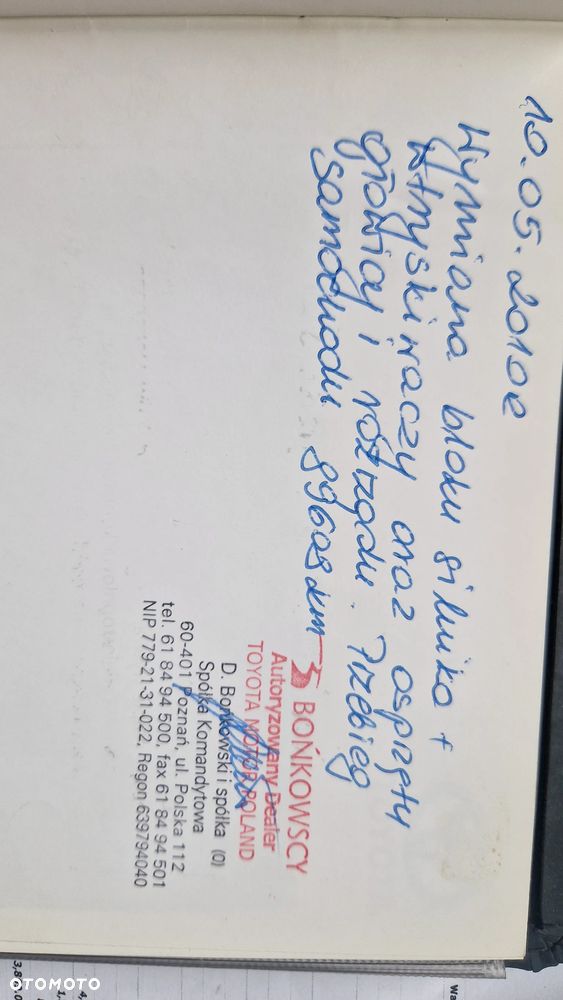 19.05.2010r
Wymiana bloku silnika +
wtryskiwaczy oraz osprzętu
głowicy i rozrządu. Przebieg
samochodu 89608 km
BOŃKOWSCY
Autoryzowany Dealer
TOYOTA MOTOR POLAND
D. Bońkowski i spółka (0)
Spółka Komandytowa
60-401 Poznań, ul. Polska 112
tel. 61 84 94 500, fax 61 84 94 501
NIP 779-21-31-022, Regon 639794040
OTOMOTO